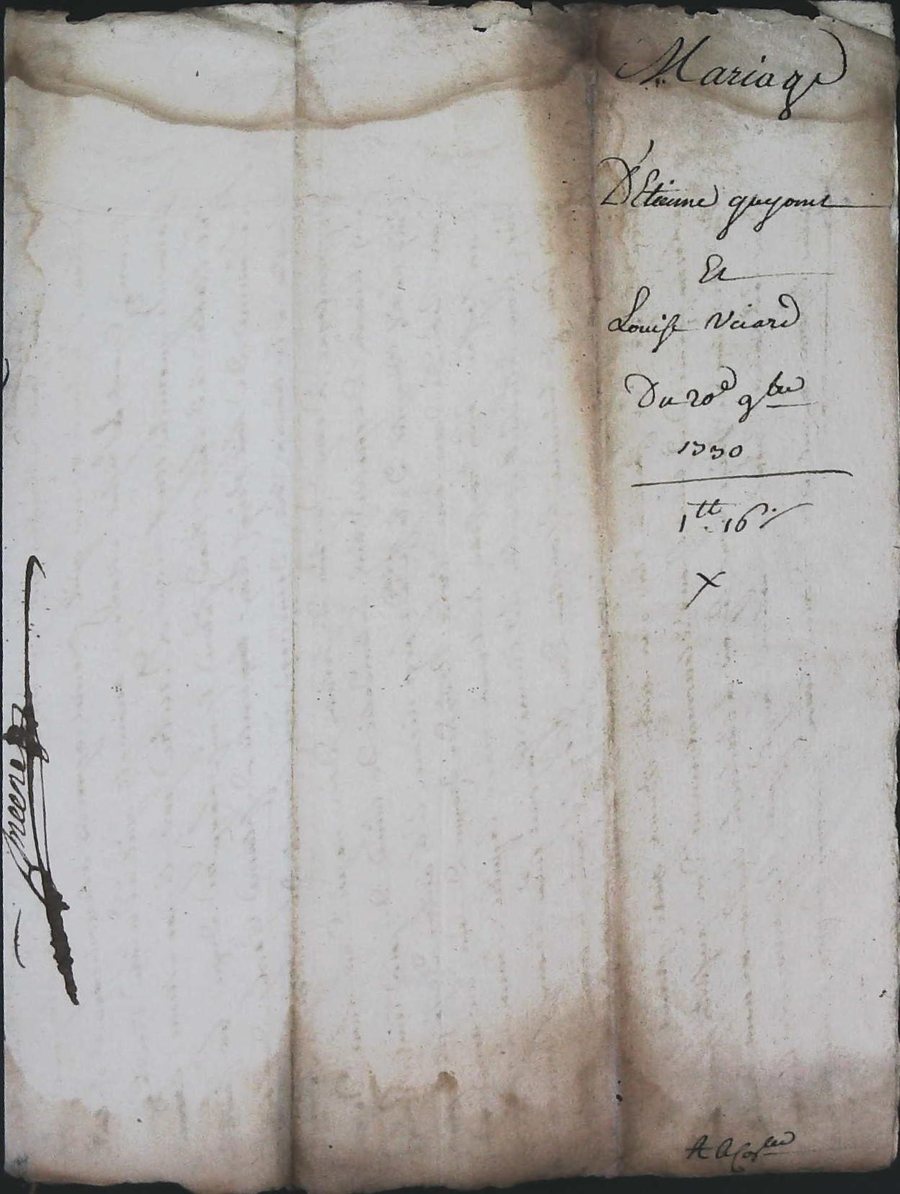 Mariage
D'Etienne guyomt
Et
Louise Viard
Du 20e 9bre
1730
1tt 16s
x